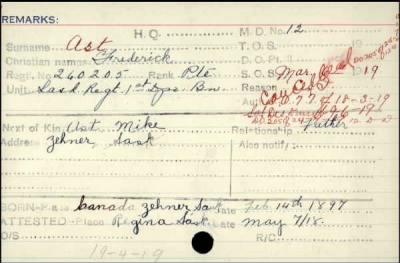 REMARKS:
H.Q. M.D. No. 12
Surname Ast T.O.S. 19
Christian names Frederick D.O. Pt.
Regt. No 260205 Rank Pte S.O.S. Mar 19
Unit Sask Regt. 1st Dpo Bn Reason
Auth D.O. 77 of 18-3-19
Next of Kin Ast Mike Relationship Father
Address Zehner Sask Also notify:
BORN—Place Canada Zehner Sask Date Feb 14th 1897
ATTESTED—Place Regina Sask Date May 7/18.
O/S R/C
19-4-19